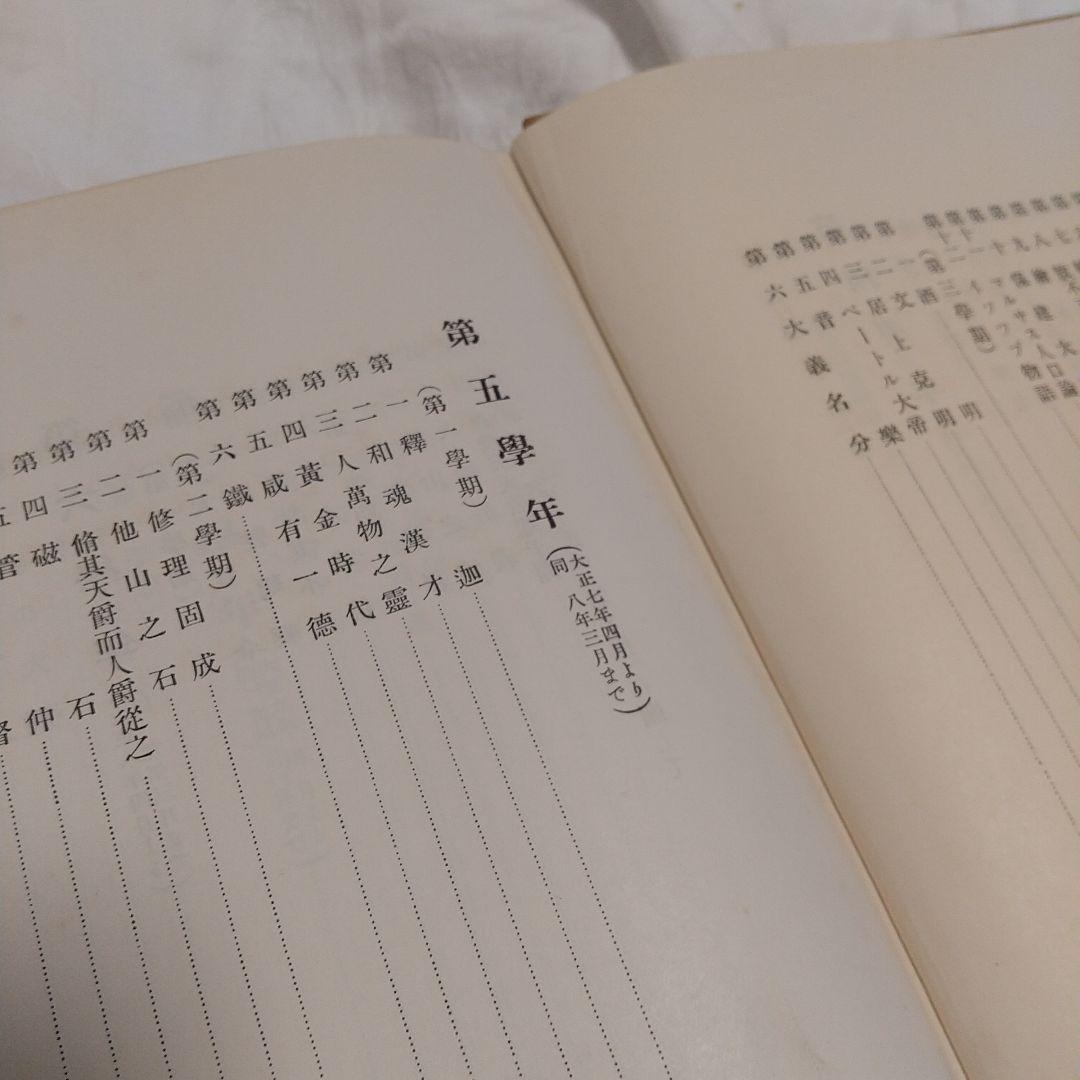 第十一マルサス人口論
第十二イソップ物語
(第三學期)
第一酒
第二文明
第三居上克明
第四ペートル大帝
第五音樂
第六大義名分
第五學年(大正七年四月より
同八年三月まで)
(第一學期)
第一釋迦
第二和魂漢才
第三人萬物之靈
第四黃金時代
第五咸有一德
第六鐵
(第二學期)
第一修理固成
第二他山之石
第三脩其天爵而人爵從之
第四磁石
第五管仲
督